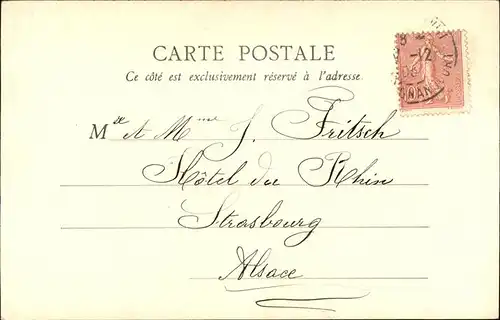 CARTE POSTALE
Ce côté est exclusivement réservé à l'adresse.
M. et Mme J. Fritsch
Hôtel du Rhin
Strasbourg
Alsace